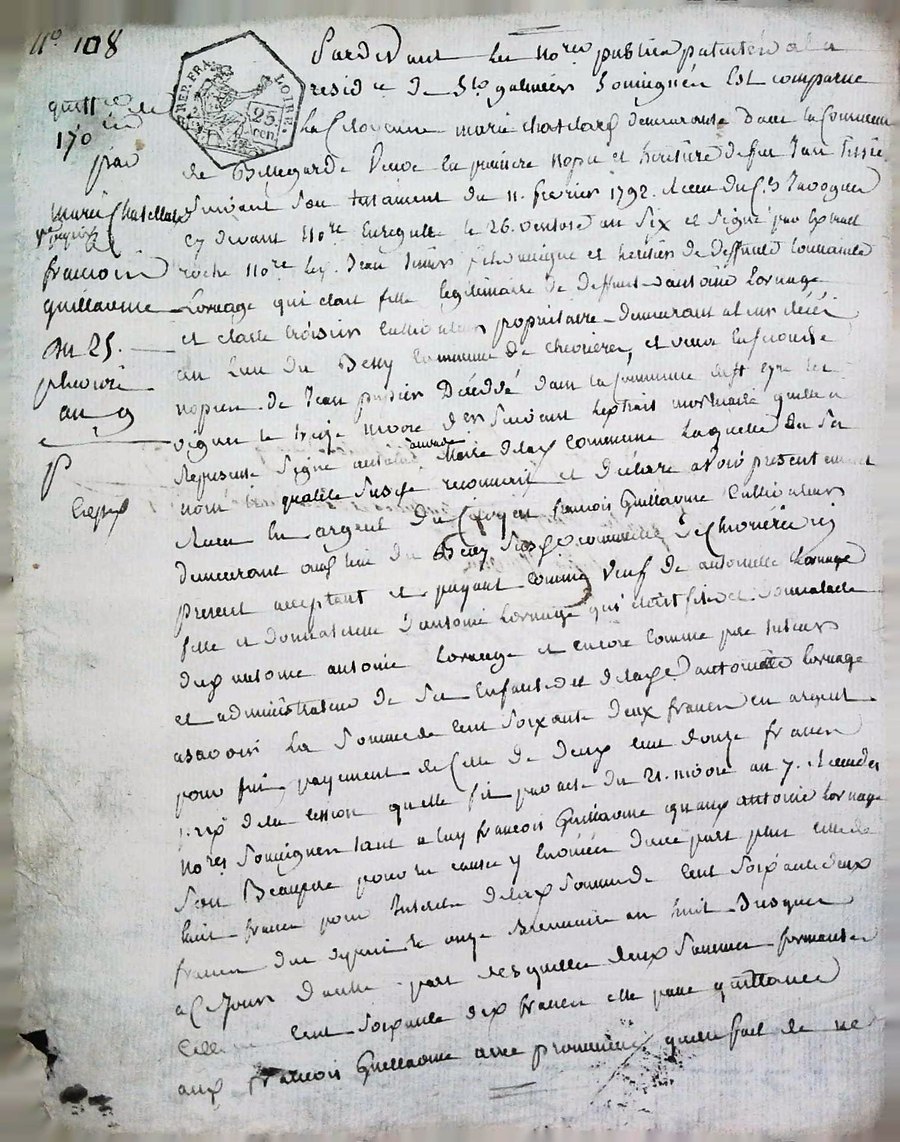 N° 108
quittce de
170
par
marie Chatellard
ve
françois
guillaume
du 25.
pluviose
an 9
REP. FRA.
LOIRE.
25
cen
Pardevant les nores publics patentés a la
residce de St. galmier soussignés Est comparue
La Citoyenne marie chatelard demeurante dans la Commune
de Bellegarde veuve en premiere nopce et heritiere de feu Jean
suivant son testament du 11. fevrier 1792. Receu du Cn Javogues
cy devant nore Enregistré le 26. ventose an six et signé par Extrait
roche nore ley. Jean et heritier de deffunte
Lornage qui etoit fille legitimaire de deffunt antoine Lornage
et claude cultivateur proprietaire demeurant a leur décés
au Lieu du Bessy Commune de chevrieres, et veuve en seconde
nopces de Jean Décédé dans la Commune de St eyr les
vignes le treize nivose der suivant Lextrait mortuaire quelle a
Represente signé Maire de lad Commune Laquelle de son
nom et qualité susde reconnoit et déclare avoir presentement
Receu en argent du Citoyen françois Guillaume Cultivateur
demeurant aud lieu du Bessy susd Commune de Chevrieres ici
present acceptant et payant comme veuf de antoinette Lornage
fille et donnataire dantoine Lornage qui etoit fils et donnataire
dud antoine Lornage et encore comme pere tuteur
et administrateur de ses Enfants et de lad antoinette Lornage
asavoir La somme de cent soixante deux francs en argent
pour fin payement de Celle de deux cent douze francs
prix de la cession quelle fit par acte du 21. nivose an 7. Receu des
nores soussignés tant a luy françois Guillaume quaux antoine Lornage
son Beaupere pour les causes y Enoncées dune part plus celle de
huit francs pour Interets de lad somme de cent soixante deux
francs dus depuis le onze Brumaire an huit Jusques
a Ce Jour dautre part lesquelles deux sommes formantes
Celle de cent soixante dix francs elle passe quittance
aud françois Guillaume avec promesse quen fait de ne